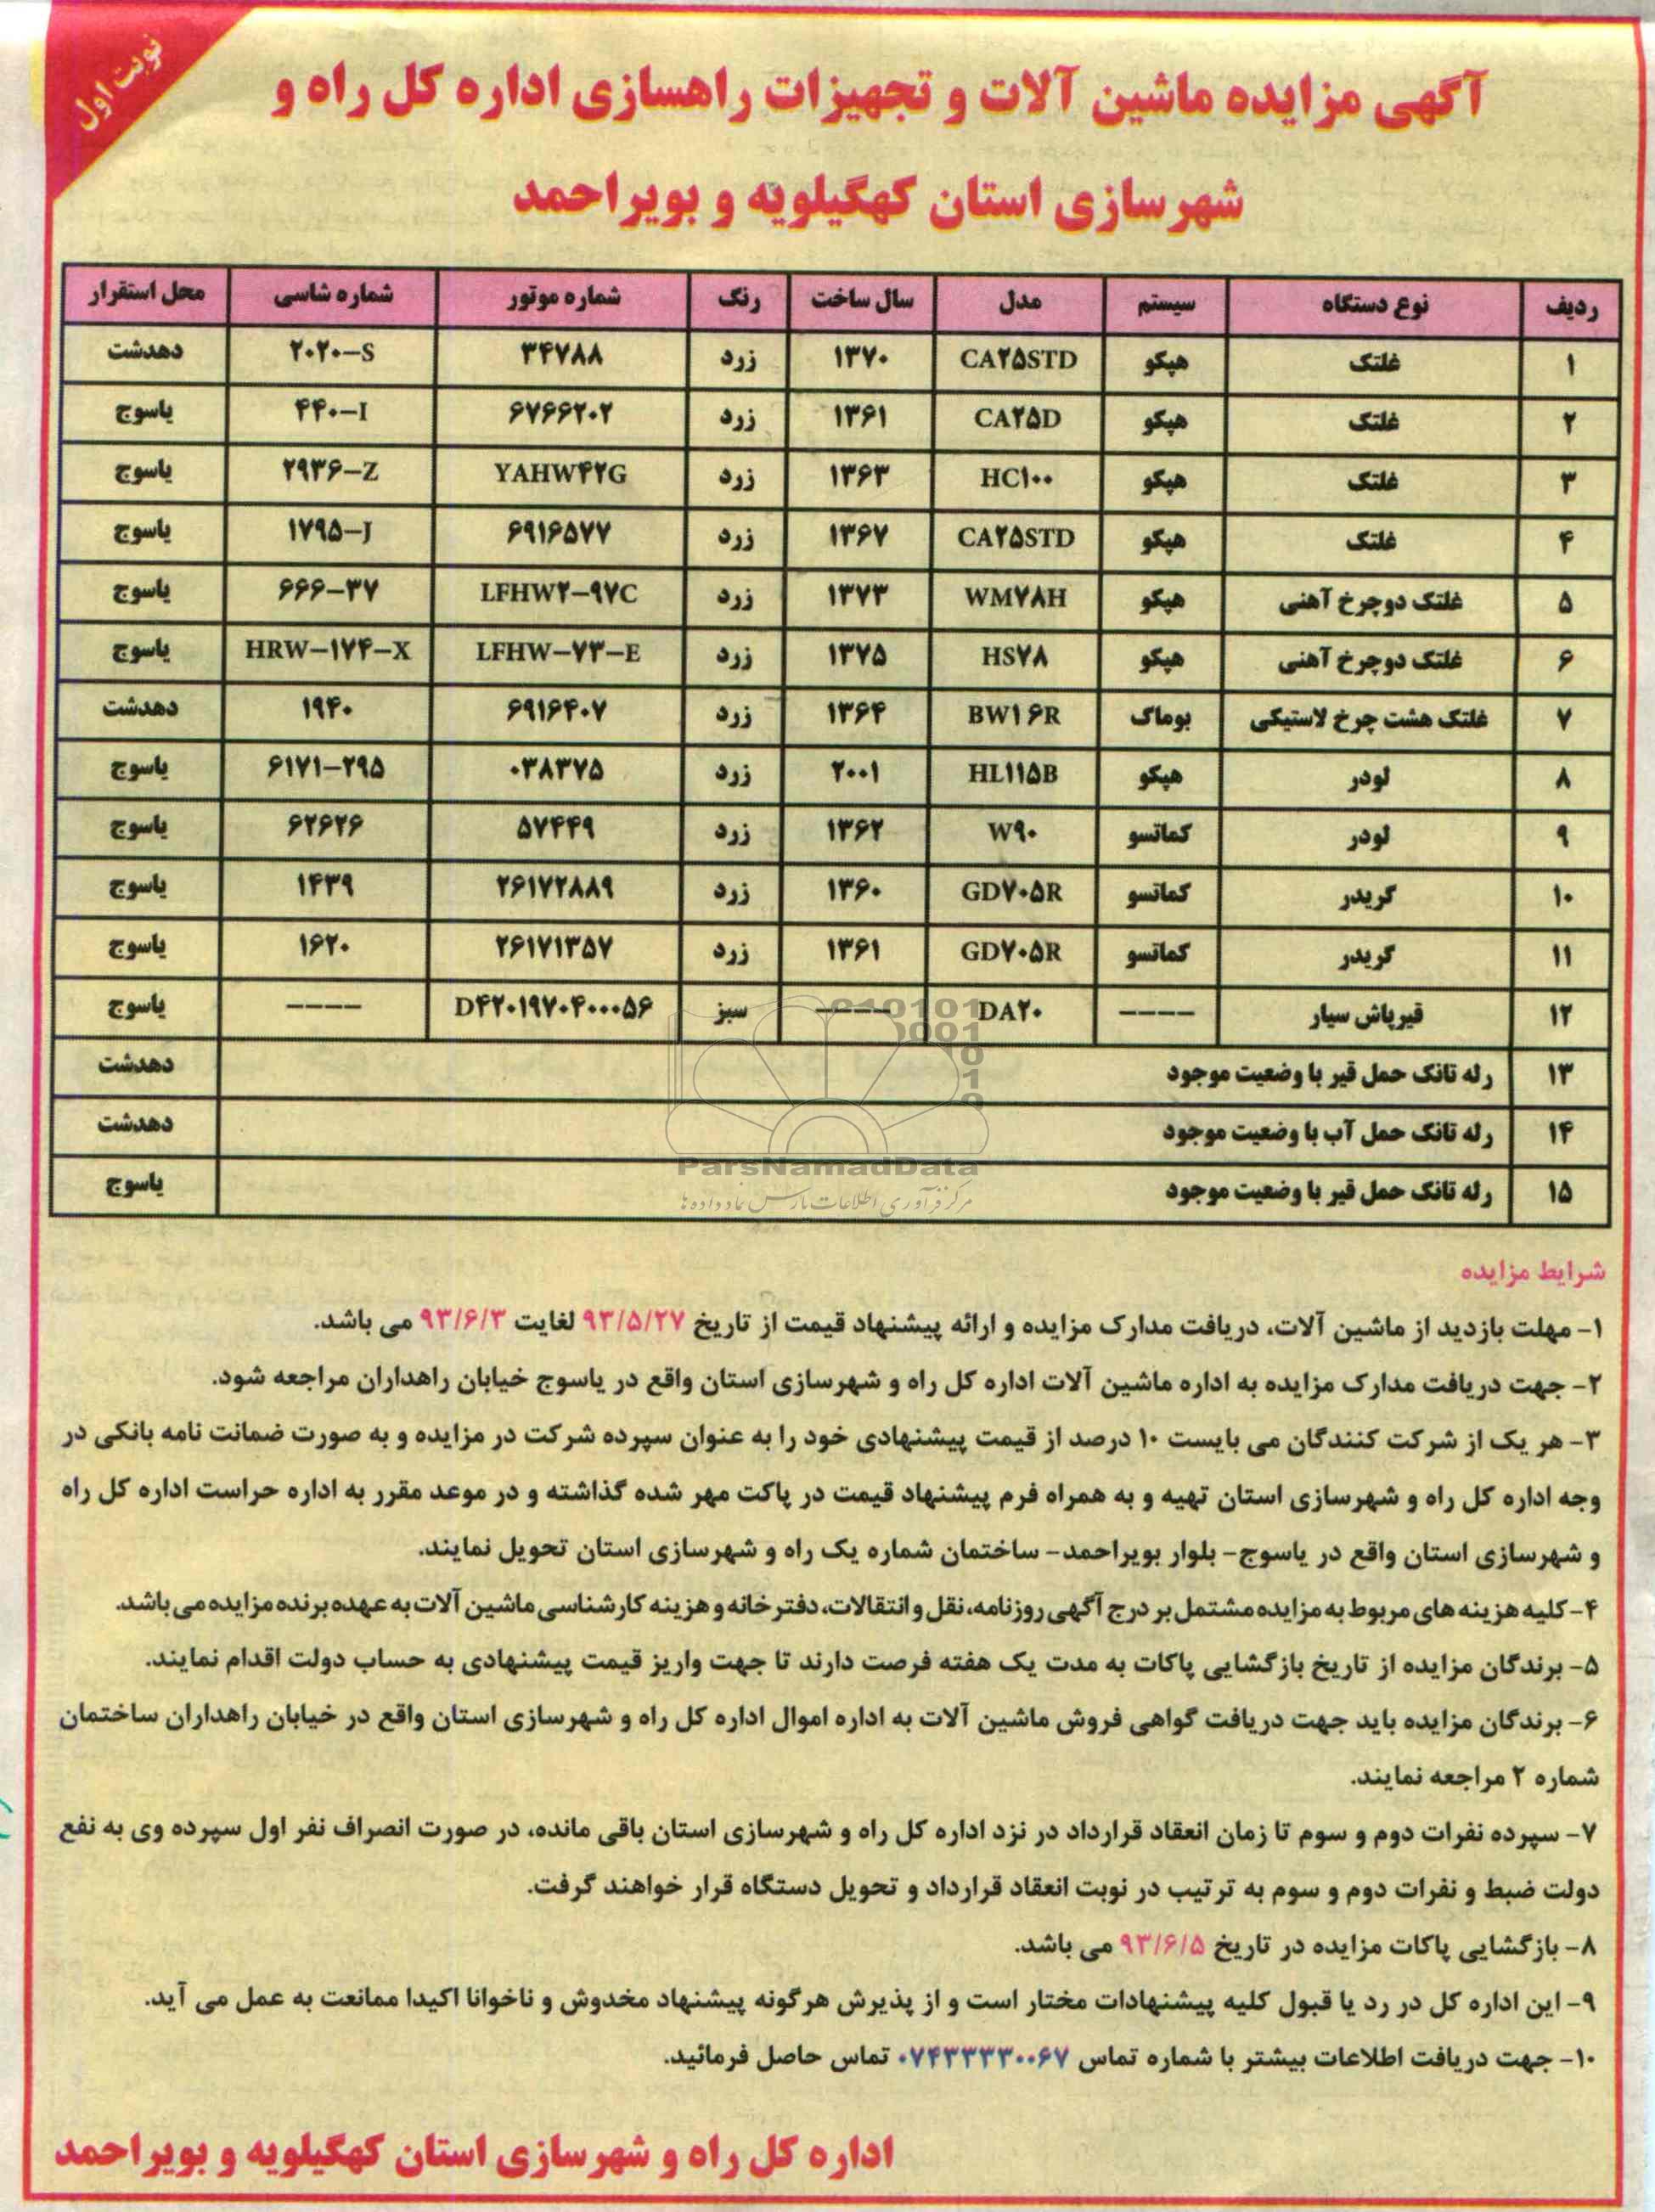 نوبت اول
آگهی مزایده ماشین آلات و تجهیزات راهسازی اداره کل راه و
شهرسازی استان کهگیلویه و بویراحمد
ردیف نوع دستگاه سیستم مدل سال ساخت رنگ شماره موتور شماره شاسی محل استقرار
۱ غلتک هپکو CA۲۵STD ۱۳۷۰ زرد ۳۴۷۸۸ ۲۰۲۰-S دهدشت
۲ غلتک هپکو CA۲۵D ۱۳۶۱ زرد ۶۷۶۶۲۰۲ ۴۴۰-I یاسوج
۳ غلتک هپکو HC۱۰۰ ۱۳۶۳ زرد YAHW۴۲G ۲۹۳۶-Z یاسوج
۴ غلتک هپکو CA۲۵STD ۱۳۶۷ زرد ۶۹۱۶۵۷۷ ۱۷۹۵-J یاسوج
۵ غلتک دوچرخ آهنی هپکو WM۷۸H ۱۳۷۳ زرد LFHW۲-۹۷C ۶۶۶-۳۷ یاسوج
۶ غلتک دوچرخ آهنی هپکو HS۷۸ ۱۳۷۵ زرد LFHW-۷۳-E HRW-۱۷۴-X یاسوج
۷ غلتک هشت چرخ لاستیکی بوماک BW۱۶R ۱۳۶۴ زرد ۶۹۱۶۴۰۷ ۱۹۴۰ دهدشت
۸ لودر هپکو HL۱۱۵B ۲۰۰۱ زرد ۰۳۸۳۷۵ ۶۱۷۱-۲۹۵ یاسوج
۹ لودر کماتسو W۹۰ ۱۳۶۲ زرد ۵۷۴۴۹ ۶۲۶۲۶ یاسوج
۱۰ گریدر کماتسو GD۷۰۵R ۱۳۶۰ زرد ۲۶۱۷۲۸۸۹ ۱۴۳۹ یاسوج
۱۱ گریدر کماتسو GD۷۰۵R ۱۳۶۱ زرد ۲۶۱۷۱۳۵۷ ۱۶۲۰ یاسوج
۱۲ قیرپاش سیار ---- DA۲۰ ---- سبز D۴۲۰۱۹۷۰۴۰۰۰۵۶ ---- یاسوج
۱۳ رله تانک حمل قیر با وضعیت موجود دهدشت
۱۴ رله تانک حمل آب با وضعیت موجود دهدشت
۱۵ رله تانک حمل قیر با وضعیت موجود یاسوج
ParsNamadData
مرکز فرآوری اطلاعات پارس نماد داده ها
شرایط مزایده
۱- مهلت بازدید از ماشین آلات، دریافت مدارک مزایده و ارائه پیشنهاد قیمت از تاریخ ۹۳/۵/۲۷ لغایت ۹۳/۶/۳ می باشد.
۲- جهت دریافت مدارک مزایده به اداره ماشین آلات اداره کل راه و شهرسازی استان واقع در یاسوج خیابان راهداران مراجعه شود.
۳- هر یک از شرکت کنندگان می بایست ۱۰ درصد از قیمت پیشنهادی خود را به عنوان سپرده شرکت در مزایده و به صورت ضمانت نامه بانکی در
وجه اداره کل راه و شهرسازی استان تهیه و به همراه فرم پیشنهاد قیمت در پاکت مهر شده گذاشته و در موعد مقرر به اداره حراست اداره کل راه
و شهرسازی استان واقع در یاسوج- بلوار بویراحمد- ساختمان شماره یک راه و شهرسازی استان تحویل نمایند.
۴- کلیه هزینه های مربوط به مزایده مشتمل بر درج آگهی روزنامه، نقل و انتقالات، دفترخانه و هزینه کارشناسی ماشین آلات به عهده برنده مزایده می باشد.
۵- برندگان مزایده از تاریخ بازگشایی پاکات به مدت یک هفته فرصت دارند تا جهت واریز قیمت پیشنهادی به حساب دولت اقدام نمایند.
۶- برندگان مزایده باید جهت دریافت گواهی فروش ماشین آلات به اداره اموال اداره کل راه و شهرسازی استان واقع در خیابان راهداران ساختمان
شماره ۲ مراجعه نمایند.
۷- سپرده نفرات دوم و سوم تا زمان انعقاد قرارداد در نزد اداره کل راه و شهرسازی استان باقی مانده، در صورت انصراف نفر اول سپرده وی به نفع
دولت ضبط و نفرات دوم و سوم به ترتیب در نوبت انعقاد قرارداد و تحویل دستگاه قرار خواهند گرفت.
۸- بازگشایی پاکات مزایده در تاریخ ۹۳/۶/۵ می باشد.
۹- این اداره کل در رد یا قبول کلیه پیشنهادات مختار است و از پذیرش هرگونه پیشنهاد مخدوش و ناخوانا اکیدا ممانعت به عمل می آید.
۱۰- جهت دریافت اطلاعات بیشتر با شماره تماس ۰۷۴۳۳۳۳۰۰۶۷ تماس حاصل فرمائید.
اداره کل راه و شهرسازی استان کهگیلویه و بویراحمد